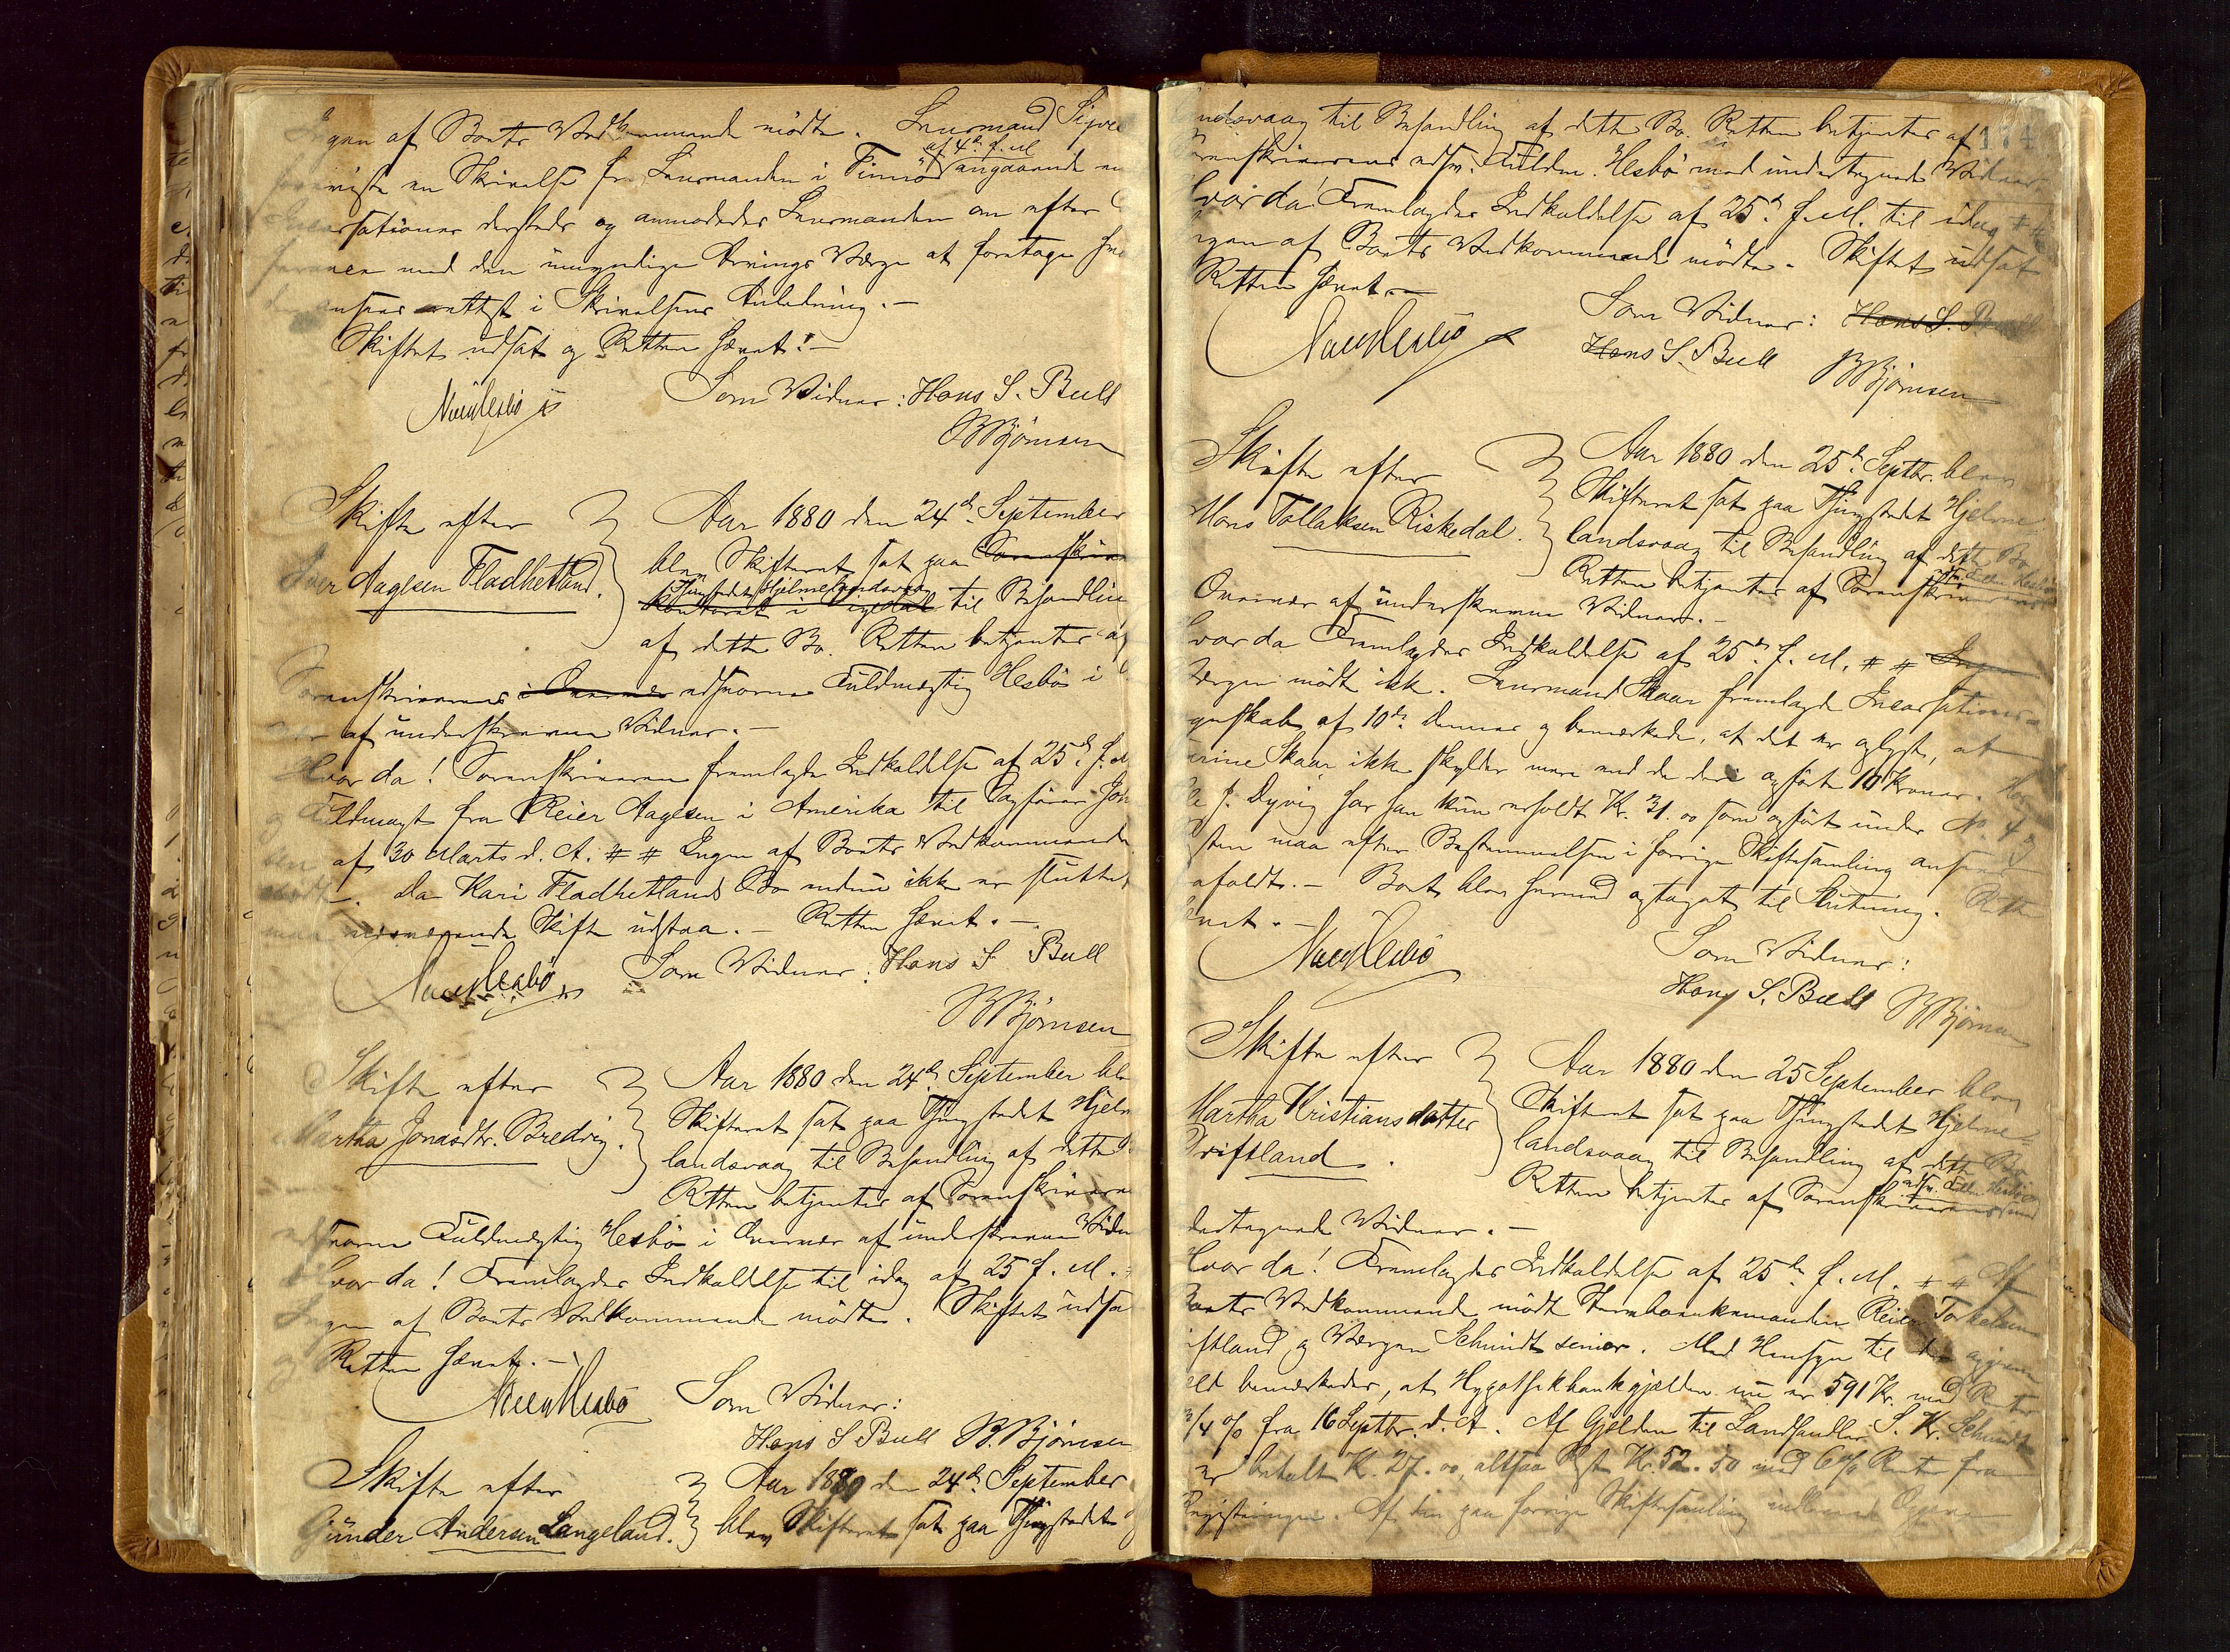 Ingen af Boets Vedkommende mødte. Lensmand Sigve
foreviste en Skrivelse fra Lensmanden i Finnø af 4de d. M. angaaende en
Incassationer dersteds og anmodedes Lensmanden om efter
med den umyndige Arvings Værge at foretage
ansees rettest i Skrivelsens Anledning. –
Skiftet udsat og Retten hævet. –
Som Vidner: Hans S. Bull
BBjörnsen
Skifte efter
Iver Aagesen Fladhetland.
Aar 1880 den 24de September
blev Skifteret sat paa Sorenskriver
Thingstedet Hjelmelandsvaag
Kontoret i til Behandling
af dette Bo. Retten betjentes af
Sorenskriverens i Overvær edsvorne Fuldmægtig Hesbö i
af underskrevne Vidner. –
Hvor da! Sorenskriveren fremlagde Indkaldelse af 25de f. M.
og Fuldmagt fra Reier Aagesen i Amerika til Sagfører
af 30 Marts d. A. # # Ingen af Boets Vedkommende
mødt. Da Kari Fladhetlands Bo endnu ikke er sluttet
maa nærværende Skifte udstaa. – Retten hævet. –
Som Vidner: Hans S Bull
BBjörnsen
Skifte efter
Martha Jonasdtr. Bredvig.
Aar 1880 den 24de September blev
Skifteret sat paa Thingstedet Hjelme
landsvaag til Behandling af dette
Retten betjentes af Sorenskriverens
edsvorne Fuldmægtig Hesbö i Overvær af underskrevne Vidner
Hvor da! Fremlagdes Indkaldelse til idag af 25 f. M.
Ingen af Boets Vedkommende mødte. Skiftet udsat
og Retten hævet. –
Som Vidner:
Hans S Bull B.Björnsen
Skifte efter
Gunder Andersen Langeland.
Aar 1880 den 24de September
blev Skifteret sat paa Thingstedet
174
landsvaag til Behandling af dette Bo. Retten betjentes af
Sorenskriverens edsv. Fuldm. Hesbö med undertegnede Vidner
Hvor da! Fremlagdes Indkaldelse af 25de f. M. til idag # #
Ingen af Boets Vedkommende mødte. Skiftet udsat
Retten hævet. –
Som Vidner: Hans S. Bull
Hans S. Bull
BBjörnsen
Skifte efter
Mons Tollaksen Riskedal.
Aar 1880 den 25de Septbr. blev
Skifteret sat paa Thingstedet Hjelme
landsvaag til Behandling af dette Bo
Retten betjentes af Sorenskriverens edsv. Fuldm. Hesbö
Overvær af underskrevne Vidner. –
Hvor da Fremlagdes Indkaldelse af 25de f. M. # # Ing
Værgen mødt ikke. Lensmand Skaar fremlagde Incassations
regnskab af 10de dennes og bemærkede, at det er oplyst, at
Skaar ikke skylder mere end de deri opførte 10 Kroner.
J. Dyvig har han kun erholdt Kr. 31.00 som opført under No. 4 og
Resten maa efter Bestemmelsen i forrige Skiftesamling ansees
afholdt. – Boet blev hermed optaget til Slutning. Retten
hævet. –
Som Vidner:
Hans S. Bull BBjörnsen
Skifte efter
Martha Kristiansdatter
Driftland.
Aar 1880 den 25 September blev
Skifteret sat paa Thingstedet Hjelme
landsvaag til Behandling af dette Bo
Retten betjentes af Sorenskriverens edsv. Fuldm. Hesbö med
undertegnede Vidner. –
Hvor da! Fremlagdes Indkaldelse af 25de f. M. # # Af
Boets Vedkommende mødt Stervboenkemanden Reier Torkelsen
Driftland og Værgen Schmidt senior. Med Hensyn til den opgivne
Gjeld bemærkedes, at Hypothekbankgjælden nu er 591 Kr. med Renter
3/4 % fra 16 Septbr. d. A. Af Gjælden til Landhandler S. Kr. Schmidt
er betalt Kr. 27.00, altsaa Rest Kr. 52.50 med 6 % Renter fra
Registeringen. Af den paa forrige Skiftesamling